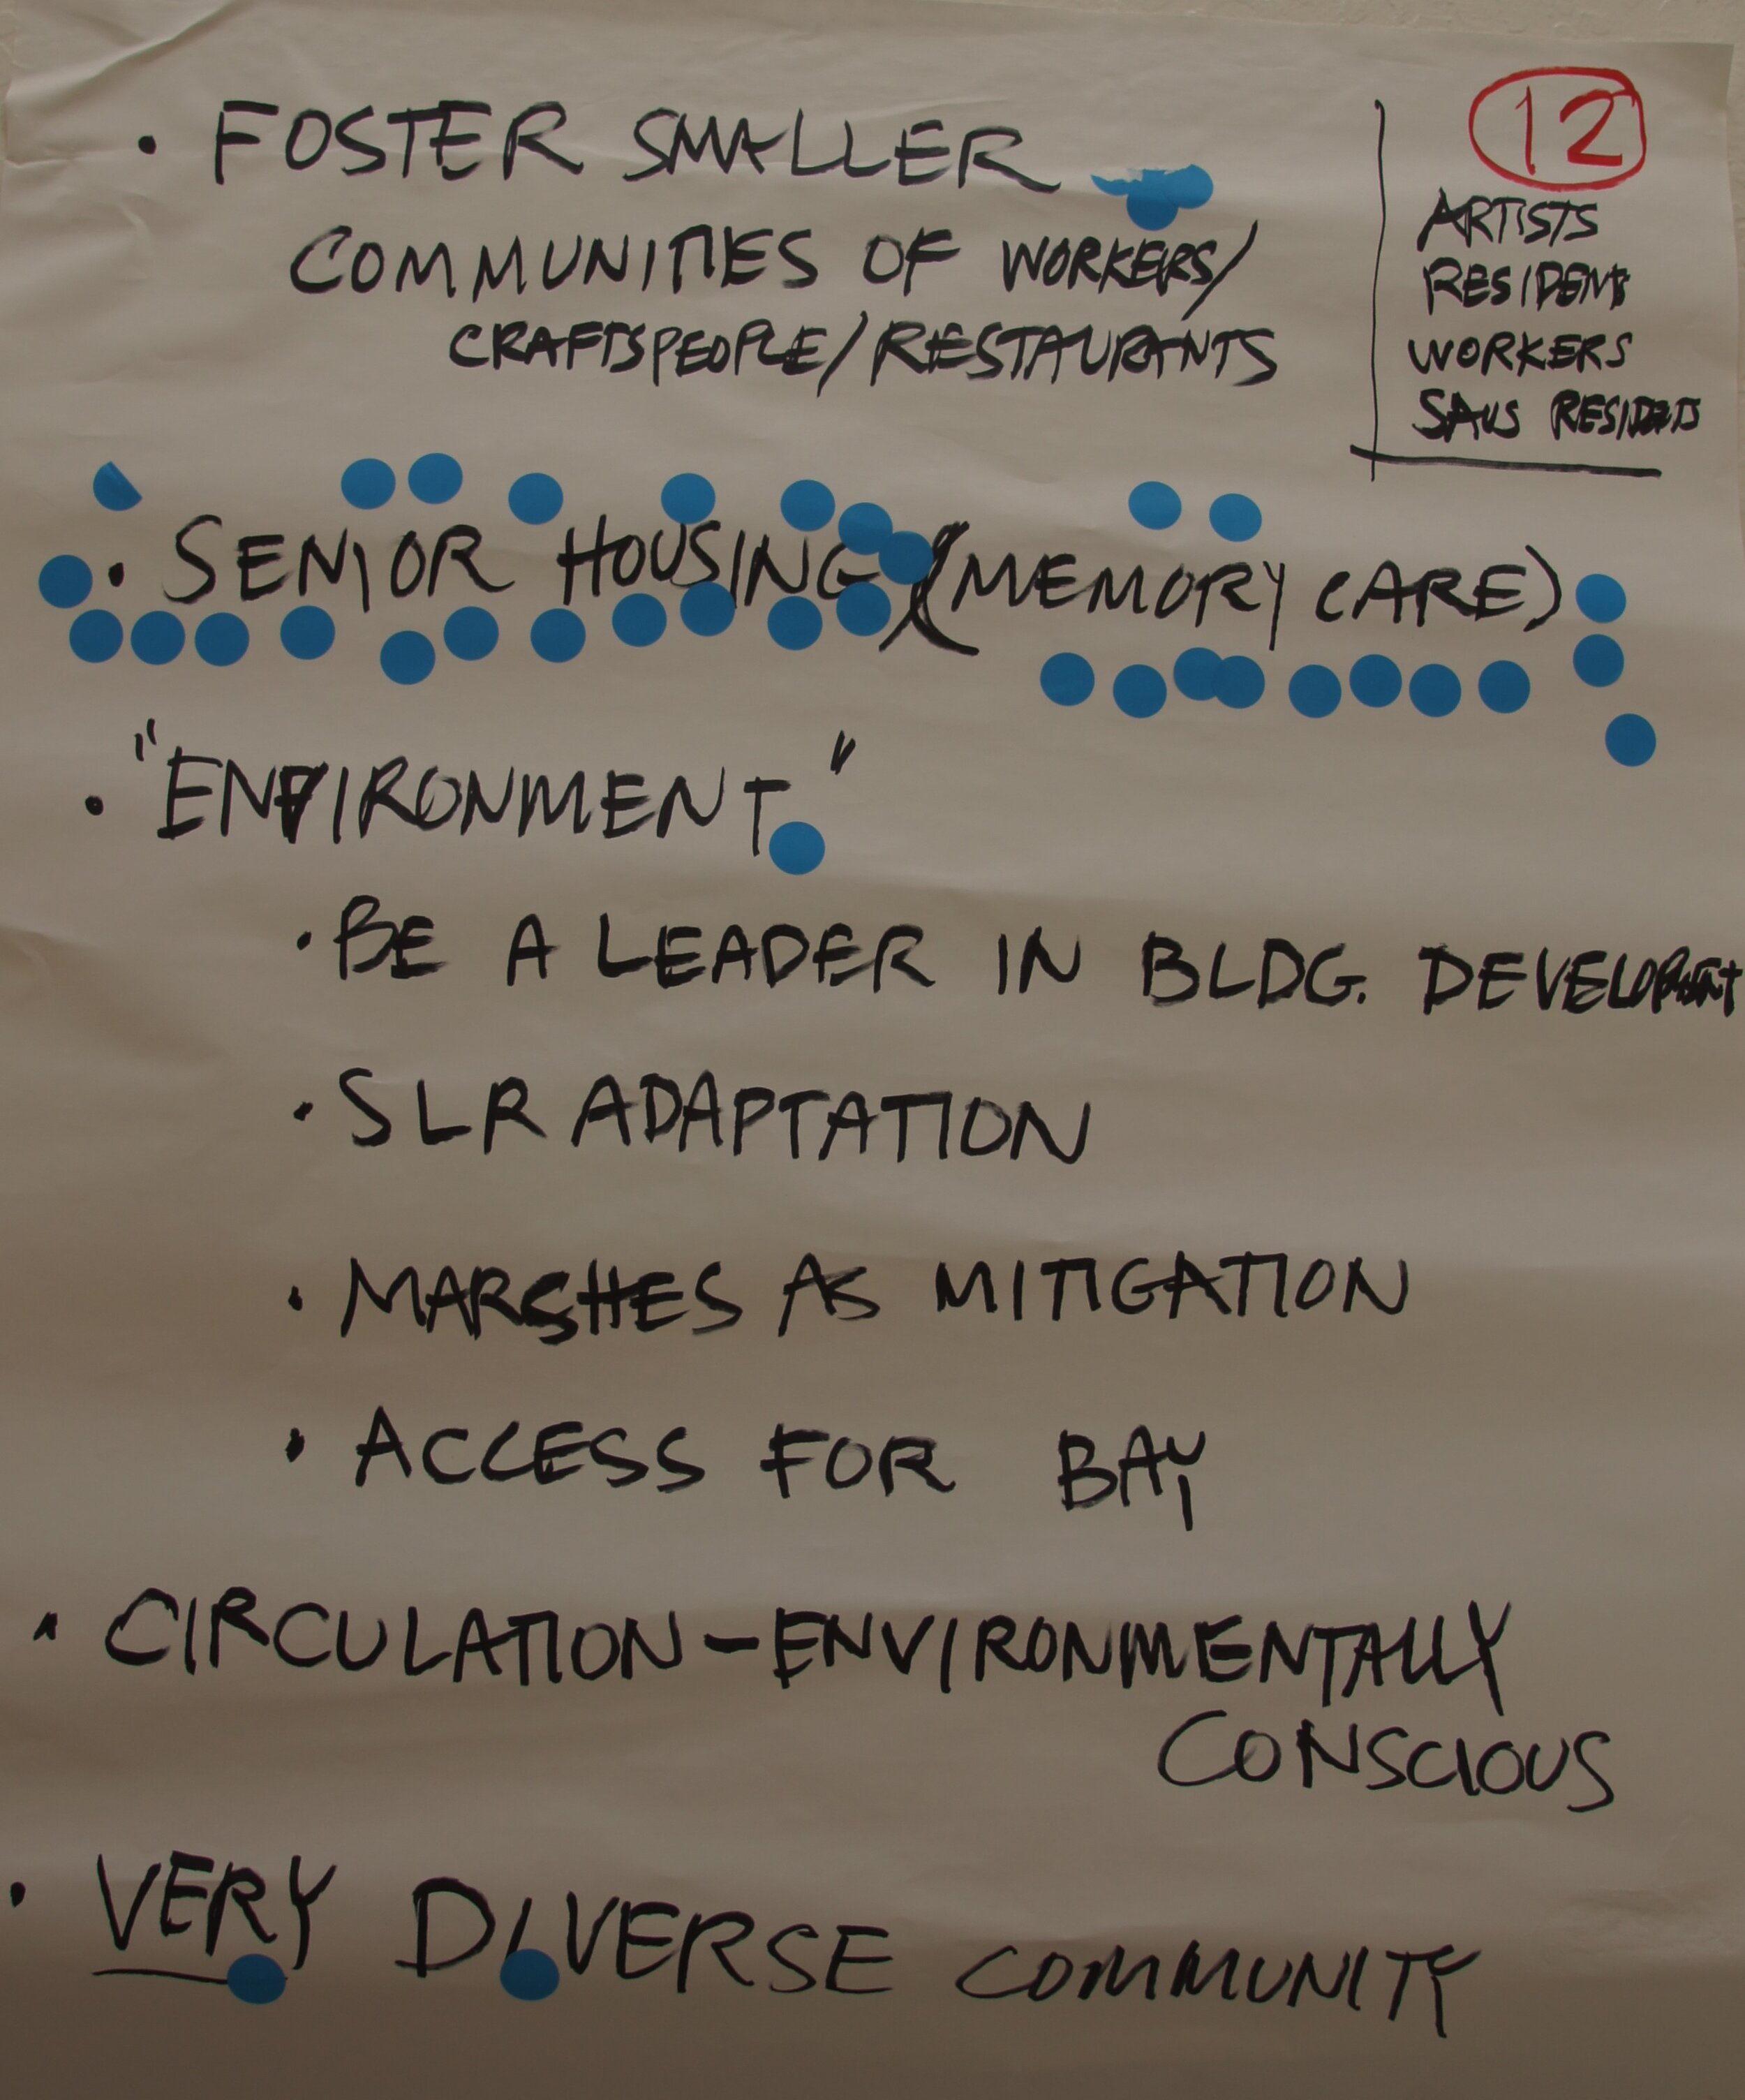 12
ARTISTS
RESIDENTS
WORKERS
SAUS RESIDENTS
• FOSTER SMALLER
COMMUNITIES OF WORKERS/
CRAFTSPEOPLE/RESTAURANTS
• SENIOR HOUSING (MEMORY CARE)
• "ENVIRONMENT"
• BE A LEADER IN BLDG. DEVELOPMENT
• SLR ADAPTATION
• MARSHES AS MITIGATION
• ACCESS FOR BAY
• CIRCULATION - ENVIRONMENTALLY
CONSCIOUS
• VERY DIVERSE COMMUNITY